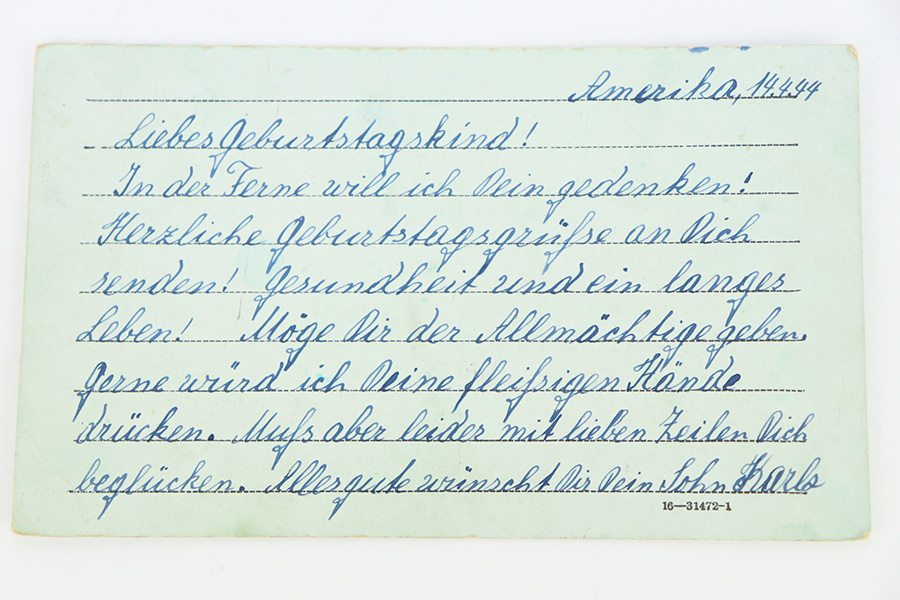 Amerika, 14.4.44
Liebes Geburtstagskind!
In der Ferne will ich Dein gedenken!
Herzliche Geburtstagsgrüße an Dich
senden! Gesundheit und ein langes
Leben! Möge Dir der Allmächtige geben.
Gerne würd ich Deine fleißigen Hände
drücken. Muß aber leider mit lieben Zeilen Dich
beglücken. Alles gute wünscht Dir Dein Sohn Karls
16—31472-1